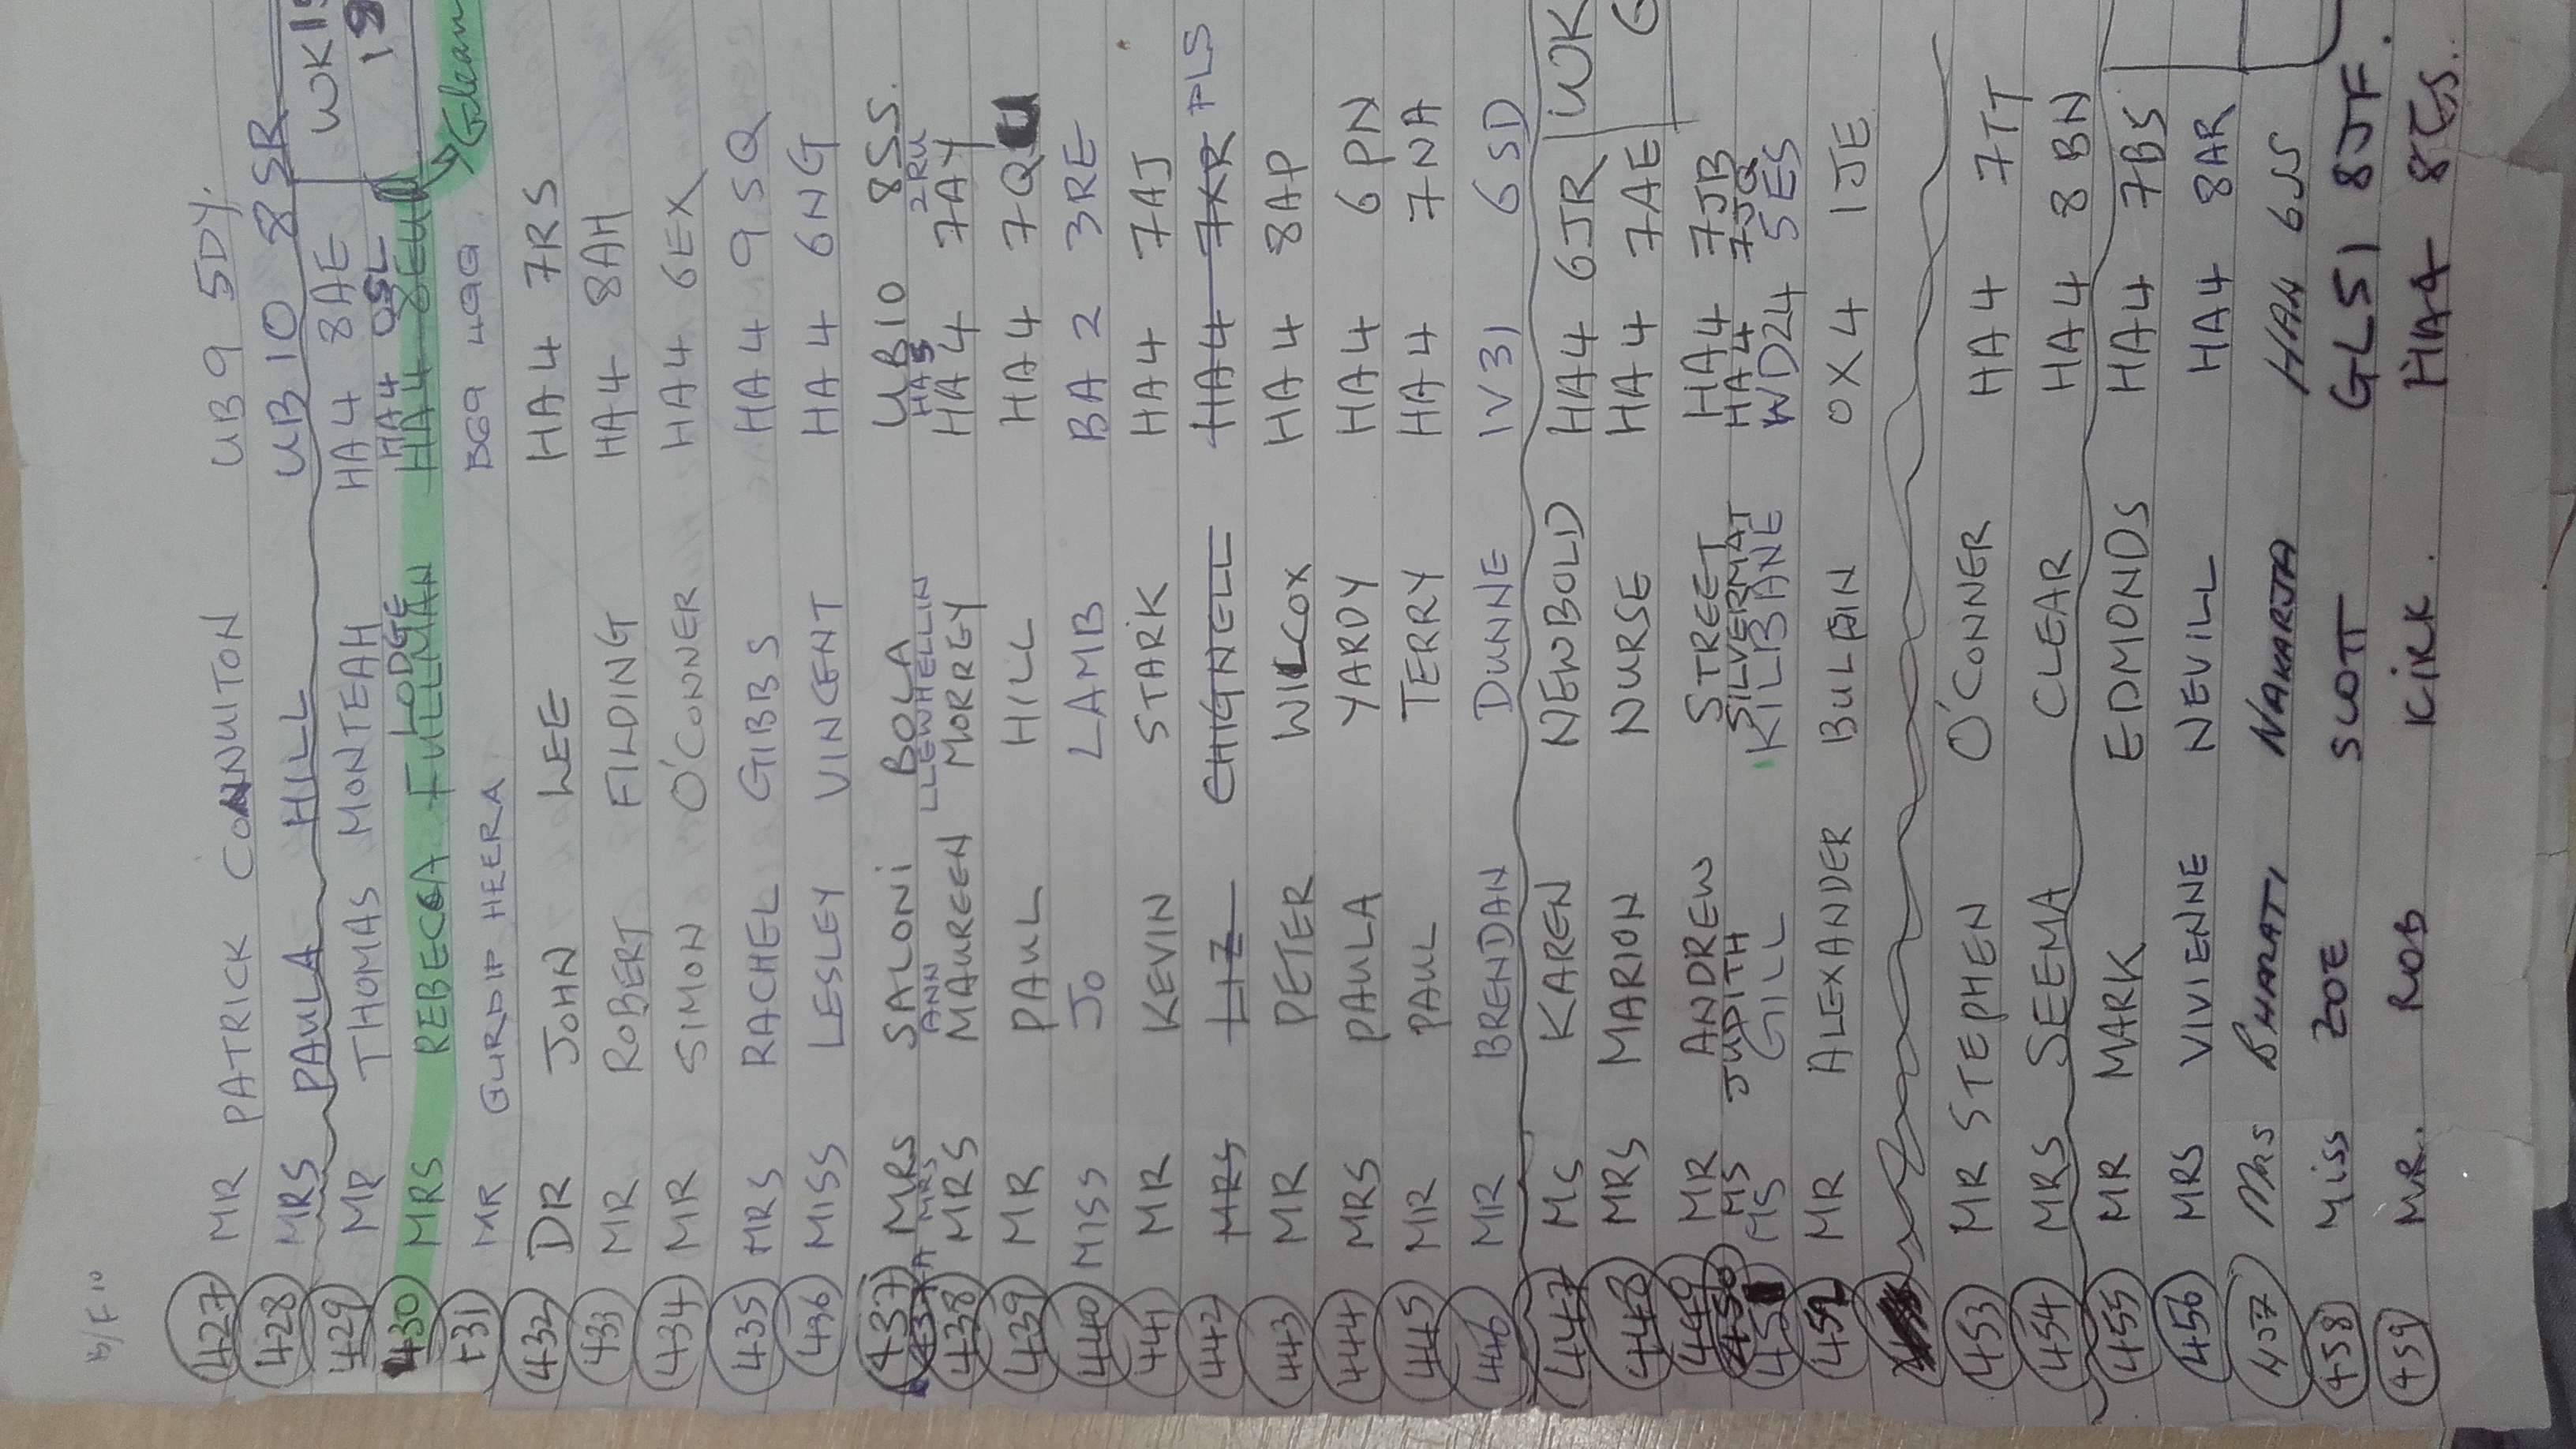 B/F 10
427 MR PATRICK CONNUITON UB9 5DY.
428 MRS PAULA HILL UB10 8SR
429 MR THOMAS MONTEAH HA4 8AE WK
LODGE HA4 0SL
430 MRS REBECCA FULLMAN HA4 8EU
431 MR GURDIP HEERA 4QG
432 DR JOHN LEE HA4 7RS
433 MR ROBERT FILDING HA4 8AH
434 MR SIMON O'CONNER HA4 6EX
435 MRS RACHEL GIBBS HA4 9SQ
436 MISS LESLEY VINCENT HA4 6NG
437 MRS SALONI BOLA UB10 8SS.
437A MRS ANN LLEWHELLIN HA5 2RU
438 MRS MAUREEN MORREY HA4 7AY
439 MR PAUL HILL HA4 7QU
440 MISS JO LAMB BA2 3RE
441 MR KEVIN STARK HA4 7AJ
442 MRS LIZ CHIGNELL HA4 7XR PLS
443 MR PETER WILCOX HA4 8AP
444 MRS PAULA YARDY HA4 6PN
445 MR PAUL TERRY HA4 7NA
446 MR BRENDAN DUNNE IV31 6SD
447 MS KAREN NEWBOLD HA4 6JR WK
448 MRS MARION NURSE HA4 7AE
449 MR ANDREW STREET HA4 7JB
450 MS JUDITH SILVERMAT HA4 7JQ
451 MS GILL KILBANE WD24 5ES
452 MR ALEXANDER OX4 1JE
453 MR STEPHEN O'CONNER HA4 7TT
454 MRS SEEMA CLEAR HA4 8BN
455 MR MARK EDMONDS HA4 7BS
456 MRS VIVIENNE NEVILL HA4 8AR
457 Mrs BHARATI NAKARJA HA4 6SS
458 Miss ZOE SCOTT GL51 8JF.
459 MR. ROB KIRK. HA4 8ES.